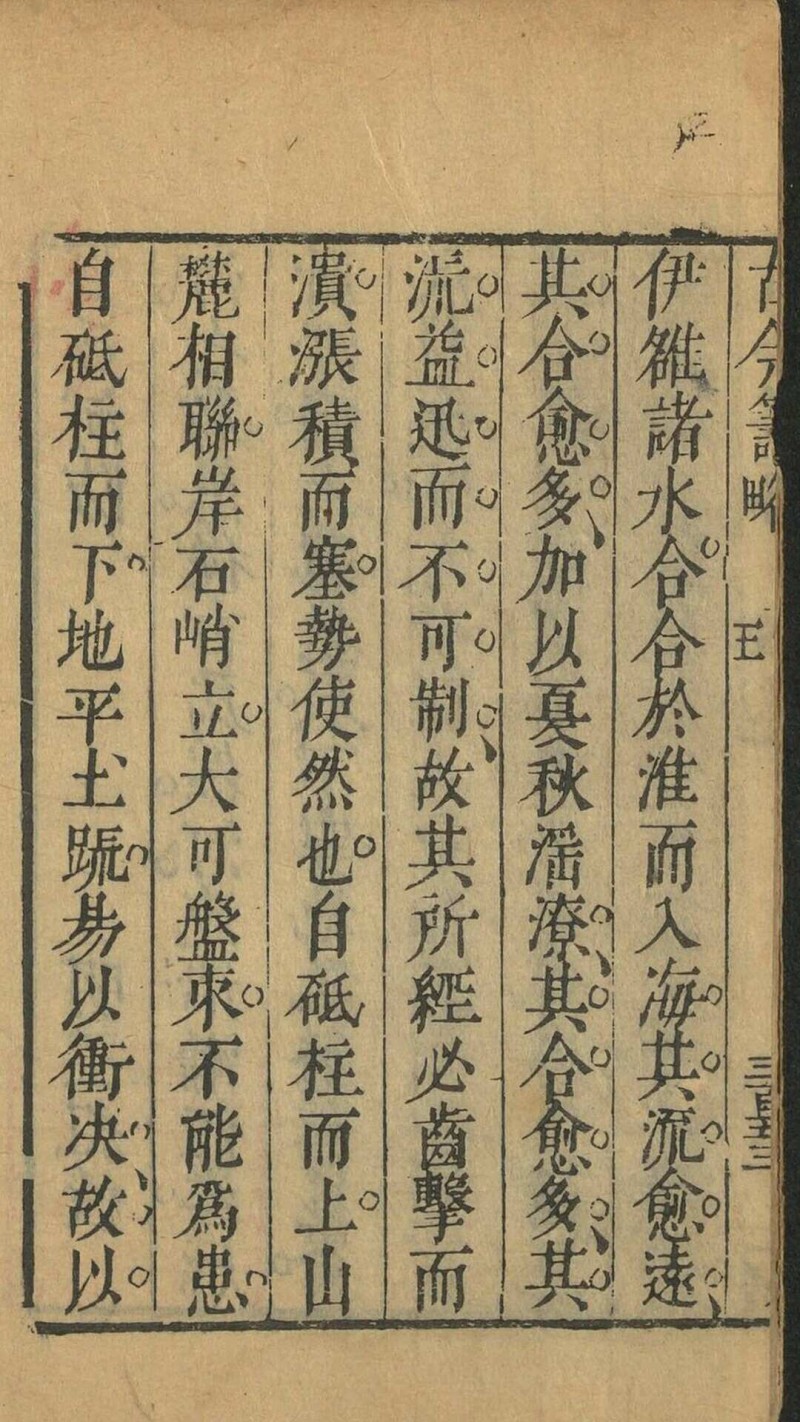 古今籌略
伊雒諸水合合於淮而入海其流愈遠
其合愈多加以夏秋滛潦其合愈多其
流益迅而不可制故其所經必齒擊而
潰漲積而塞勢使然也自砥柱而上山
麓相聯岸石峭立大可盤束不能爲患
自砥柱而下地平土䟽易以衝決故以